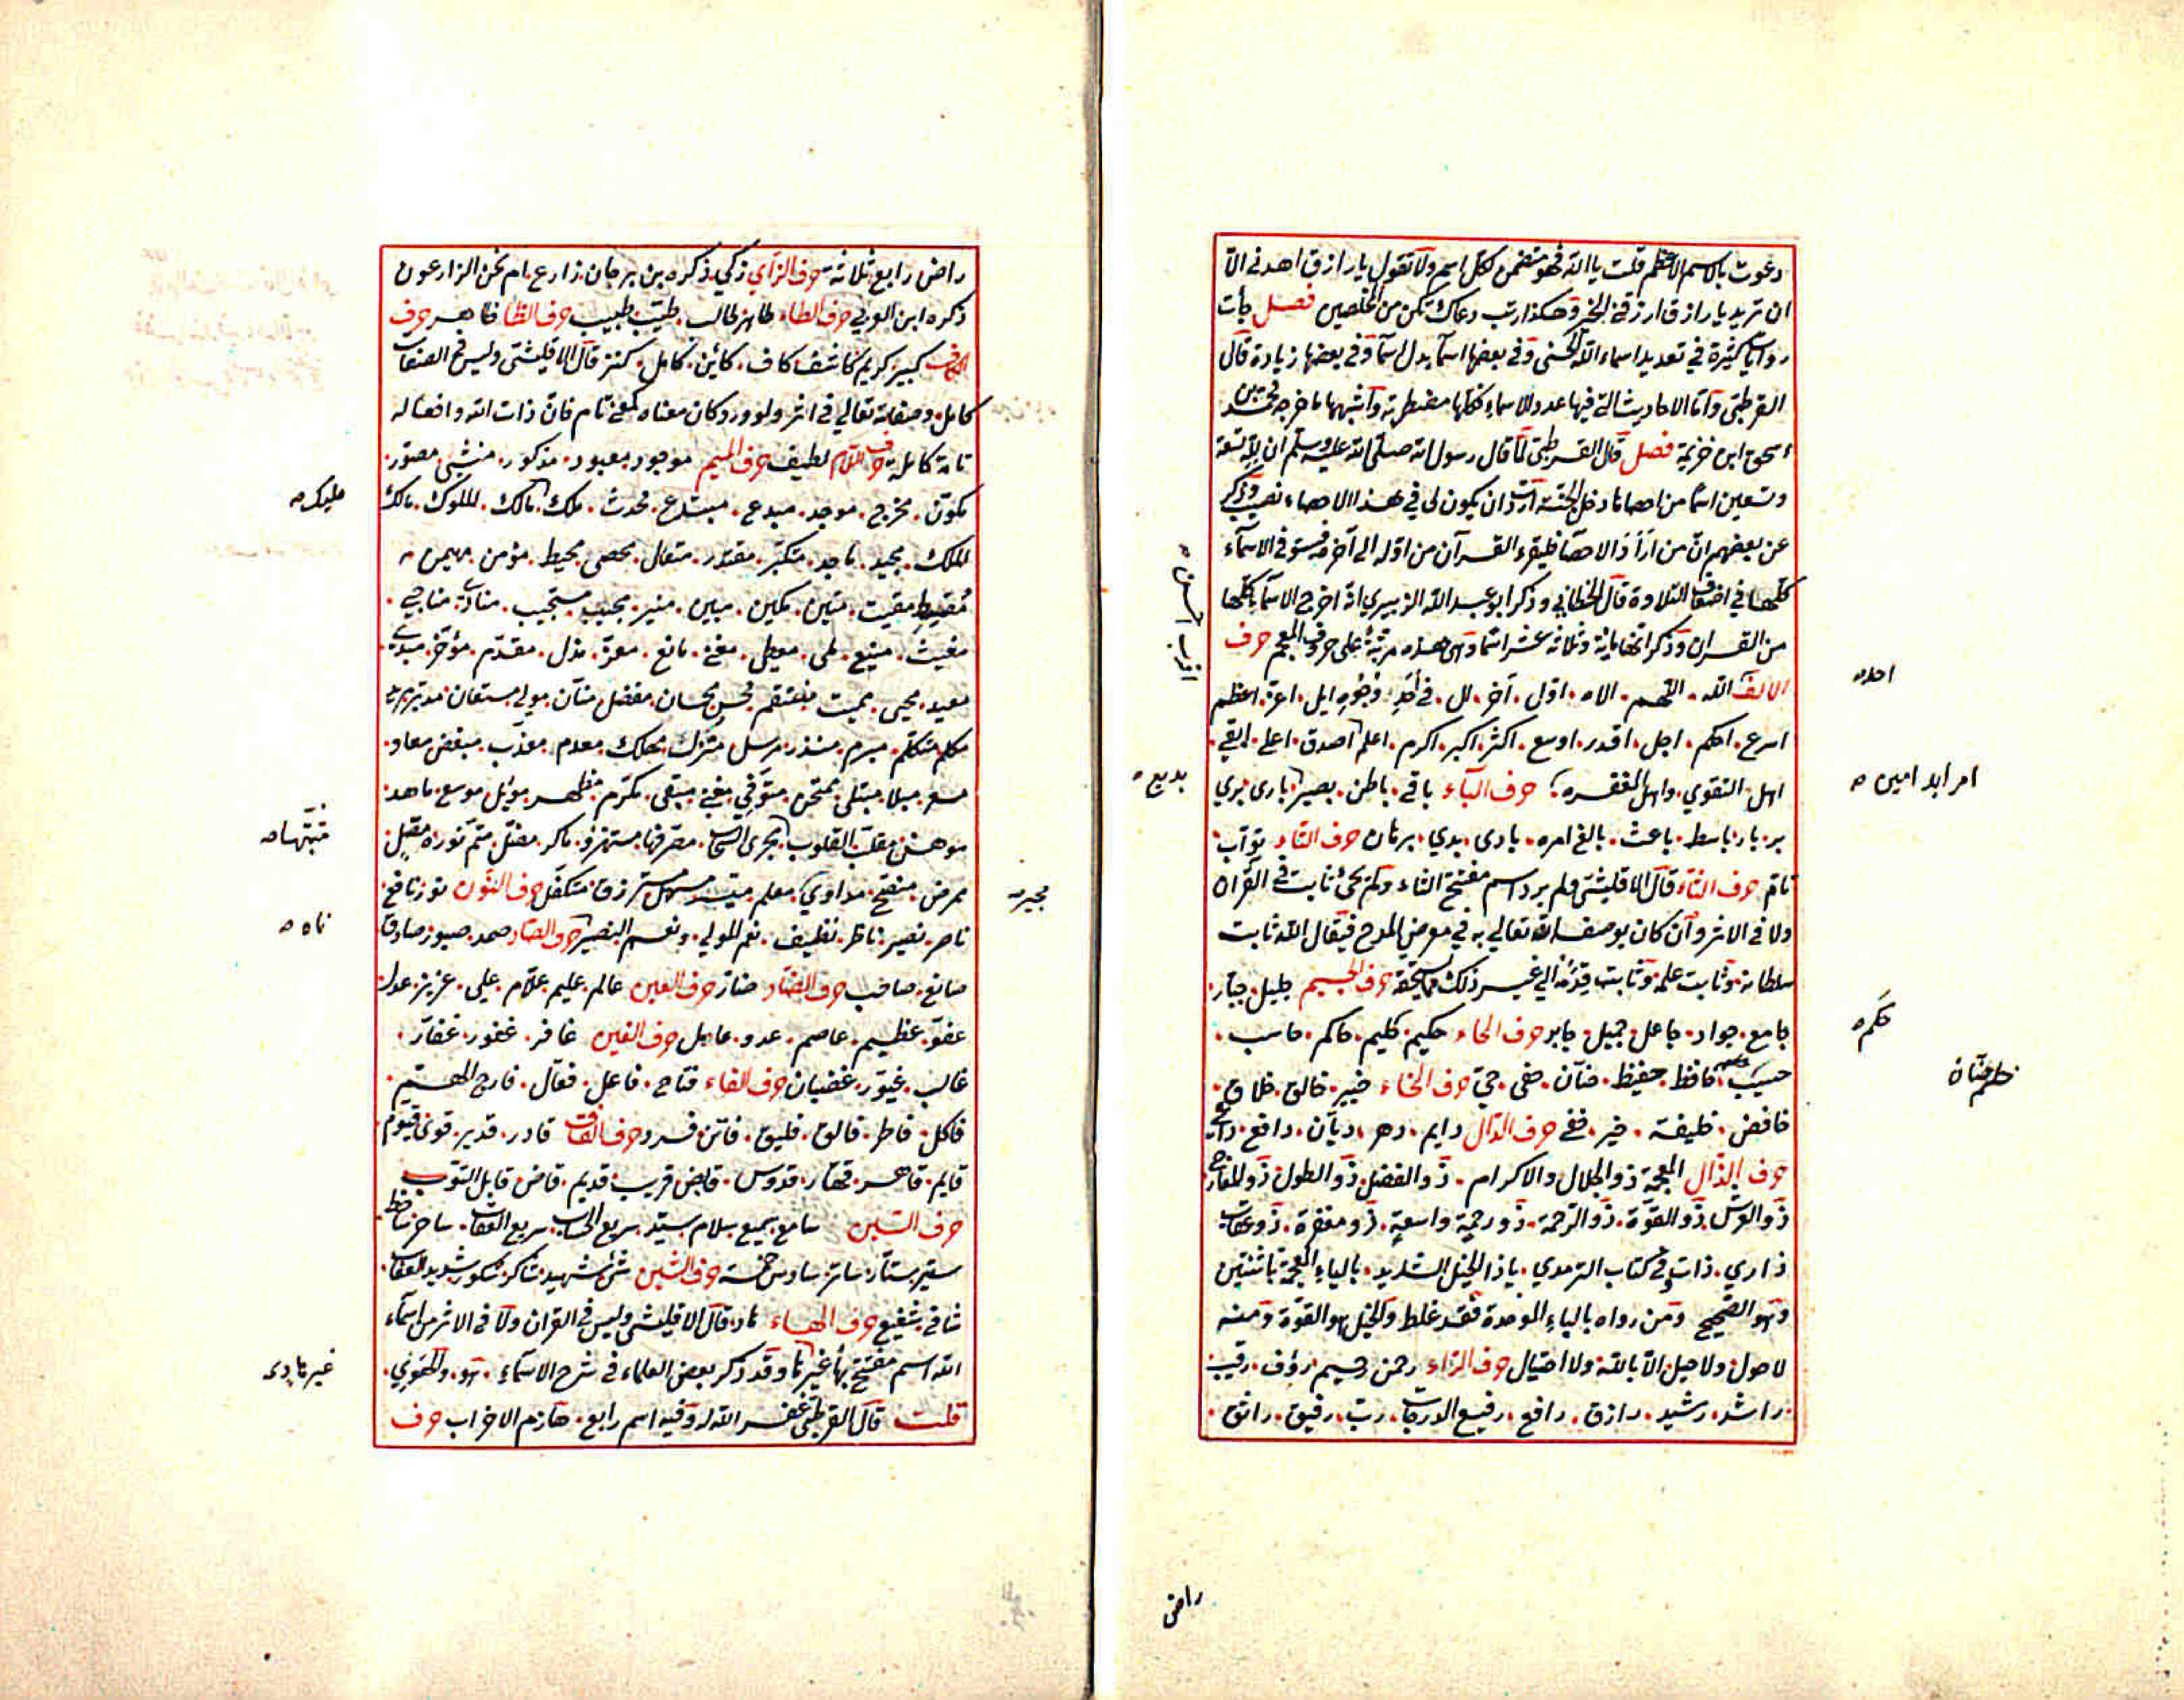 دعوت بالاسم الاعظم قلت يا الله فهو متضمن لكل اسم ولا تقول يا رازق اهدني الا
ان تريد يا رازق ارزقني الخير وهكذا رتب دعاك تكن من المخلصين فصل جأت
روايات كثيرة في تعديد اسماء الله الحسنى وفي بعضها اسمآ بدل اسمآ وفي بعضها زيادة قال
القرطبي وأما الاحاديث التي فيها عدد الاسماء فكلها مضطربة وأشبهها ما خرجه محمد بن
اسحق ابن خزيمة فصل قال القرطبي لما قال رسول الله صلى الله عليه وسلم ان لله تسعة
وتسعين اسما من احصاها دخل الجنة أردت ان يكون لي في هذا الاحصاء نصيب وذكر
عن بعضهم ان من أراد الاحصآ فليقرء القرآن من اوله الى آخره فيستوفي الاسمآء
كلها في اضعاف التلاوة قال الخطابي وذكر ابو عبد الله الزبيري انه اخرج الاسمآء كلها
من القران وذكر انها ماية وثلاثة عشر اسما وهي هذه مرتبة على حروف المعجم حرف
الالف الله . اللهم . الاه . اول . آخر . لل . في أحد وجوه ايل . اعز . اعظم
اسرع . احكم . اجل . اقدر . اوسع . اكثر . اكبر . اكرم . اعلم . اصدق . اعلى . ابقى .
اهل التقوي . واهل المغفره . حرف البآء باقي . باطن . بصير . بارى . بري
بر . بار . باسط . باعث . بالغ امره . بادى . بدي . برهان حرف التآء تواب .
تام حرف الثآء قال الاقليشي ولم يرد اسم مفتتح الثاء ولم يجئ ثابت في القرآن
ولا في الاثر وأن كان يوصف الله تعالي به في معرض المدح فيقال الله ثابت
سلطانه وثابت علمه وثابت قدمه الي غير ذلك مما يستحقه حرف الجيم جليل . جبار .
جامع . جواد . جاعل . جميل . جابر حرف الحاء حكيم . حليم . حاكم . حاسب .
حسيب . حافظ . حفيظ . حنآن . حفي . حيّ حرف الخاء خبير . خالق . خلاق .
خافض . خليفة . خير . خفي حرف الدال دايم . دهر . ديآن . دافع .
حرف الذال المعجمة ذو الجلال والاكرام . ذو الفضل . ذو الطول . ذو المعارج
ذو العرش . ذو القوة . ذو الرحمة . ذو رحمة واسعة . ذو مغفرة . ذو عقاب
ذاري . ذات وفي كتاب الترمذي . ياذا الحيل الشديد . بالياء المعجمة باثنتين
وهو الصحيح ومن رواه بالباء الموحدة فقد غلط والحيل هو القوة ومنه
لا حول ولا حيل الا بالله ولا احتيال حرف الراء رحمن رحيم . رؤف . رقيب
راشد . رشيد . رازق . رافع . رفيع الدرجات . رب . رفيق . راتق .
احد
امر ابد امين
حكم
حلم
اقرب احسن
بديع
راض
راض رابع ثلاثة حرف الزآي زكي ذكره بن برجان . زارع ام نحن الزارعون
ذكره ابن العربي حرف الطاء طاهر طالب . طيب . طبيب حرف الظا ظاهر حرف
الكاف كبير . كريم كاشف كاف . كاين . كامل . كنز قال الاقليشي وليس في الصفات
كامل وصفاته تعالي في اثر ولو ورد كان معناه كمعنى تام فان ذات الله وافعاله
تامة كاملة حرف اللام لطيف حرف الميم موجود معبود . مذكور . منشي مصور .
مكون . مخرج . موجد . مبدع . مبتدع . محدث . ملك . مالك . للملوك . مالك
الملك . مجيد . ماجد . متكبر . مقتدر . متعال . محصي . محيط . مؤمن . مهيمن
مقسط . مقيت . متين . مكين . مبين . منير . مجيب . مستجيب . مناد . مناجي .
مغيث . منيع . ملي . معطي . مغني . مانع . معز . مذل . مقدم . مؤخر . مبدئ .
معيد . محيي . مميت . منتقم . محسن . مفضل . منآن . مولي . مستعان . مدبر
مكلم متكلم . مبرم . منذر . مرسل . منزل . مهلك . معدم . معذب . مبغض . معاد .
مبتلى . ممتحن . متوفي . مفني . مبقي . مكرم . مظهر . موسع . ماهد .
موهن . مقلب القلوب . مجرى السحاب . مستهزئ . ماكر . مضل . متم نوره .
ممرض . مداوي . معلم . متكفل حرف النون نور . نافع .
ناصر . نصير . ناظر . نظيف . نعم المولي . ونعم النصير حرف الصاد صمد . صبور . صادق
صانع . صاحب حرف الضاد ضار حرف العين عالم . عليم . علام . علي . عزيز . عدل .
عفو . عظيم . عاصم . عدو . عاجل حرف الغين غافر . غفور . غفار .
غالب . غيور . غضبان حرف الفاء فتاح . فاعل . فعال . فارج الهم .
فاكل . فاطر . فالق . فليق . فاتن فرد حرف القاف قادر . قدير . قوي قيوم
قايم . قاهر . قهار . قدوس . قابض قريب قديم . قاض قابل التوب
حرف السين سامع سميع سلام سيد . سريع الحساب سريع العقاب . ساخر . ساخط
ستير . ستار . ساتر . سادس خمسة حرف الشين شئ . شهيد . شاكر . شكور . شديد العقاب .
شافي . شفيع حرف الهاء هاد قال الاقليشي وليس في القران ولا في الاثر من اسماء
الله اسم مفتتح بها غير ها وقد ذكر بعض العلماء في شرح الاسماء . هو . والهوي .
قلت قال القرطبي غفر الله له وفيه اسم رابع . هازم الاحزاب حرف
مليك
ناه
غير هادى
مجير